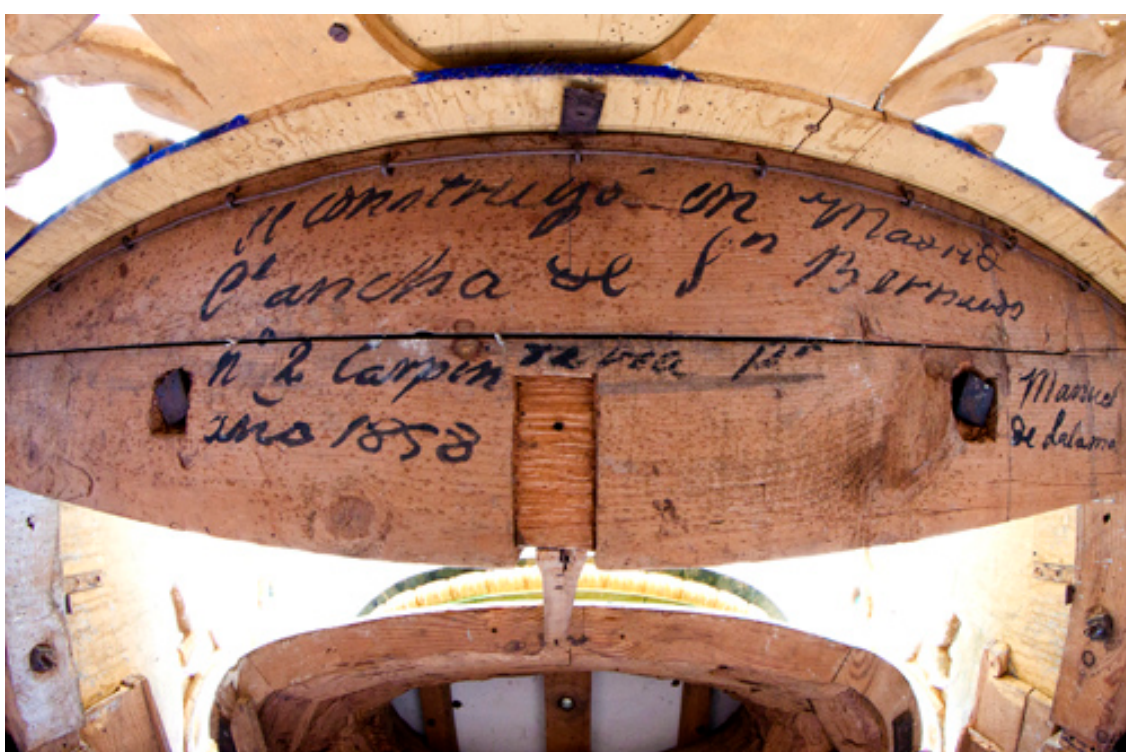 Se construyó en Madrid
C. ancha de Sn Bernardo
nº 2 Carpinteria pr
año 1858
Manuel
de Lalama